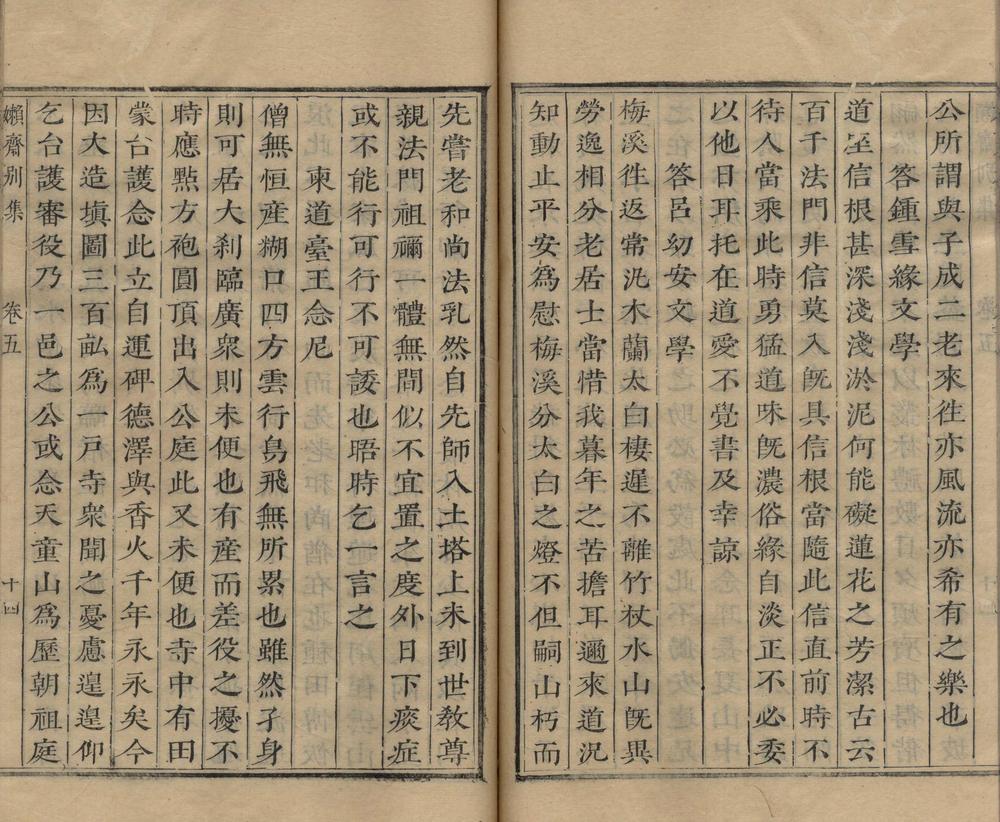 公所謂與子成二老來徃亦風流亦希有之樂也
答鍾雪緣文學
道至信根甚深淺淺淤泥何能礙蓮花之芳潔古云
百千法門非信莫入旣具信根當隨此信直前時不
待人當乘此時勇猛道味旣濃俗緣自淡正不必委
以他日耳托在道愛不覺書及幸諒
答呂幼安文學
梅溪徃返常汎木蘭太白棲遲不離竹杖水山旣異
勞逸相分老居士當惜我暮年之苦擔耳邇來道況
知動止平安為慰梅溪分太白之燈不但嗣山朽而
先嘗老和尚法乳然自先師入土塔上未到世教尊
親法門祖禰一體無間似不宜置之度外日下痰症
或不能行可行不可諉也晤時乞一言之
柬道臺王念尼
僧無恒產糊口四方雲行鳥飛無所累也雖然孑身
則可居大刹臨廣衆則未便也有産而差役之擾不
時應㸃方袍圓頂出入公庭此又未便也寺中有田
蒙台護念此立自運碑德澤與香火千年永永矣今
因大造塡圖三百畝為一戸寺衆聞之憂慮遑遑仰
乞台護審役乃一邑之公或念天童山為歷朝祖庭
嬾齋别集
卷五
十四